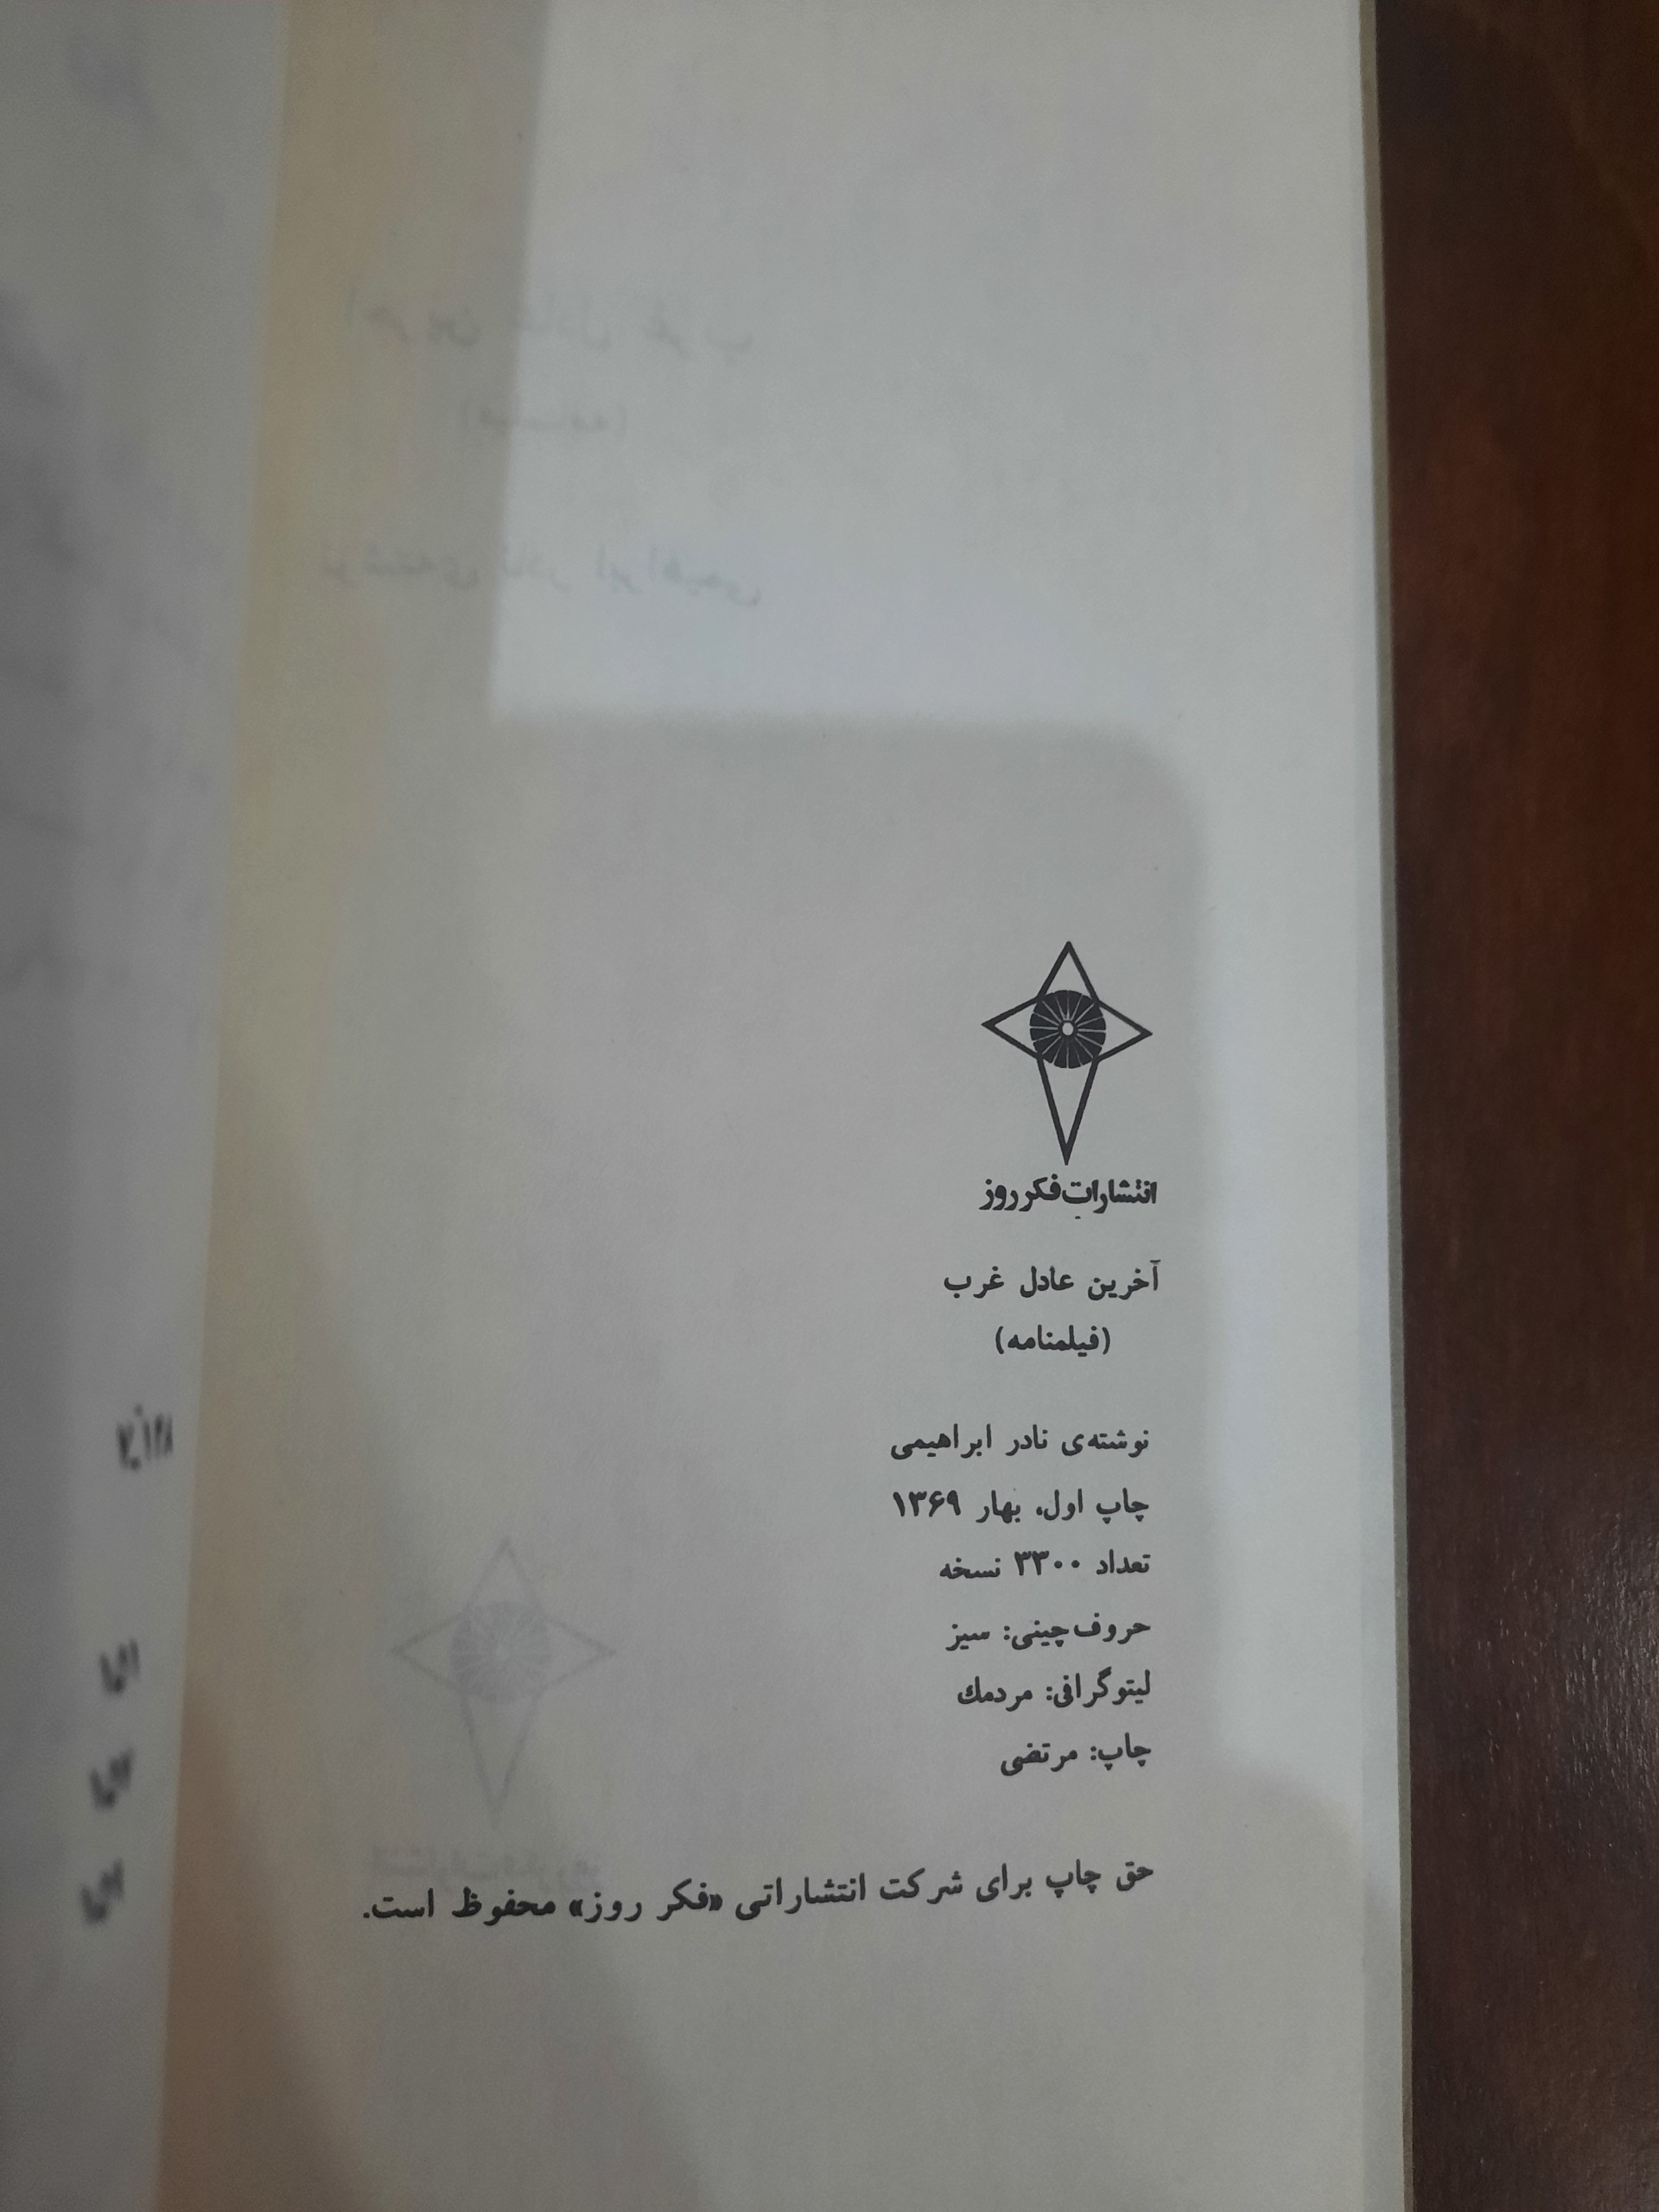 انتشارات فکر روز
آخرین عادل غرب
(فیلمنامه)
نوشته‌ی نادر ابراهیمی
چاپ اول، بهار ۱۳۶۹
تعداد ۳۳۰۰ نسخه
حروف‌چینی: سیز
لیتوگرافی: مردمك
چاپ: مرتضی
حق چاپ برای شرکت انتشاراتی «فکر روز» محفوظ است.